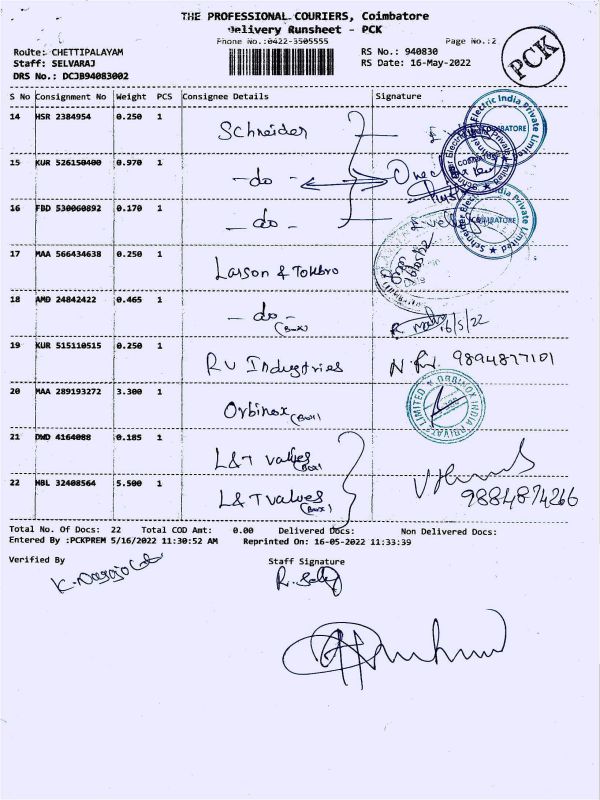 THE PROFESSIONAL COURIERS, Coimbatore
Delivery Runsheet - PCK
Phone No.:0422-3505555 Page No.:2
Route: CHETTIPALAYAM RS No.: 940830
Staff: SELVARAJ RS Date: 16-May-2022
DRS No.: DCJB94083002
PCK
S No Consignment No Weight PCS Consignee Details Signature
14 HSR 2384954 0.250 1 Schneider
15 KUR 526150400 0.970 1 - do -
16 FBD 530060892 0.170 1 - do -
17 MAA 566434638 0.250 1 Larson & Tokbro
18 AMD 24842422 0.465 1 - do - (Box) 16/5/22
19 KUR 515110515 0.250 1 RV Industries 9894877101
20 MAA 289193272 3.300 1 Orbinox (Box)
ORBINOX INDIA PRIVATE LIMITED
21 DWD 4164088 0.185 1 L&T valves (Box)
22 NBL 32408564 5.500 1 L&T valves (Box) 9884874266
Schneider Electric India Private Limited
COIMBATORE
Total No. Of Docs: 22 Total COD Amt: 0.00 Delivered Docs: Non Delivered Docs:
Entered By :PCKPREM 5/16/2022 11:30:52 AM Reprinted On: 16-05-2022 11:33:39
Verified By Staff Signature